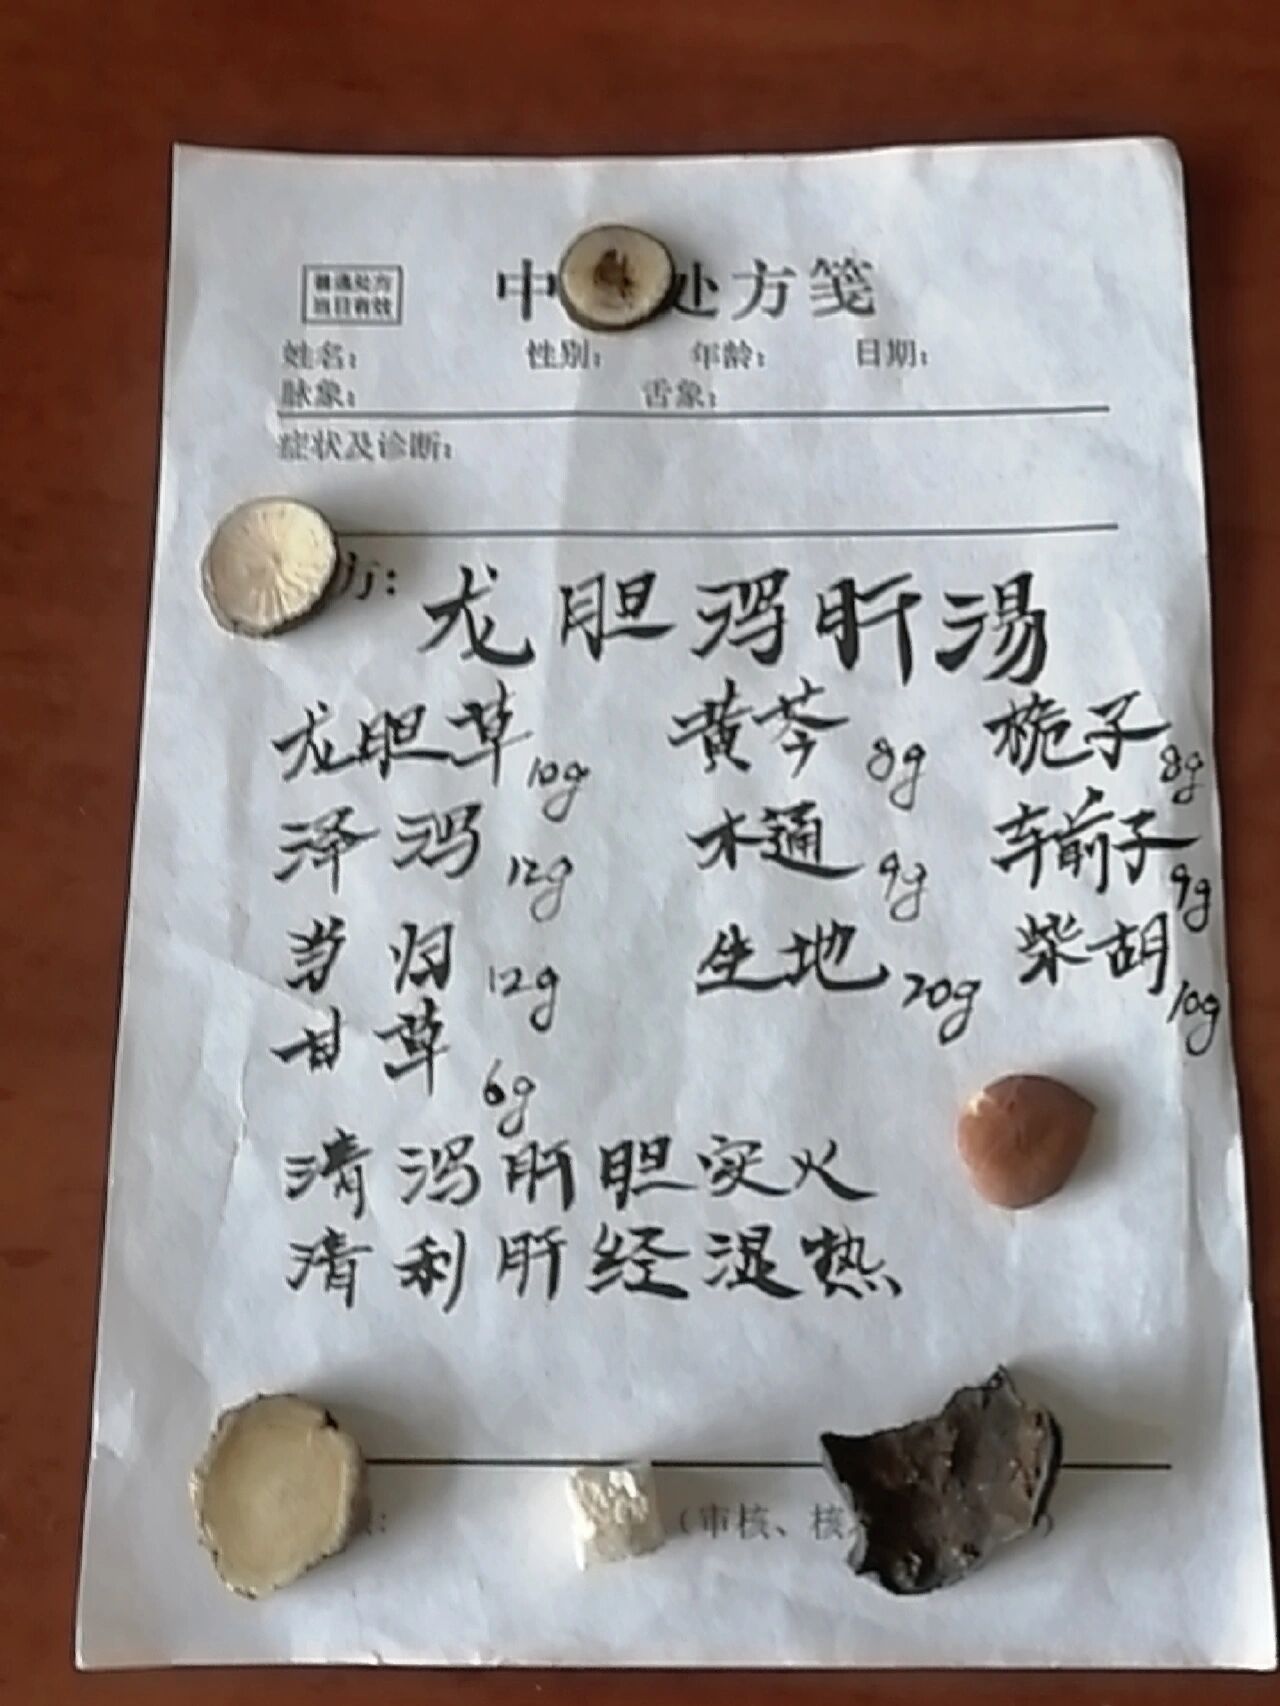 普通处方
当日有效
中 处方笺
姓名： 性别： 年龄： 日期：
脉象： 舌象：
症状及诊断：
方：龙胆泻肝汤
龙胆草10g 黄芩8g 桅子8g
泽泻12g 木通9g 车前子9g
当归12g 生地20g 柴胡10g
甘草6g
清泻肝胆实火
清利肝经湿热
（审核、核 ）